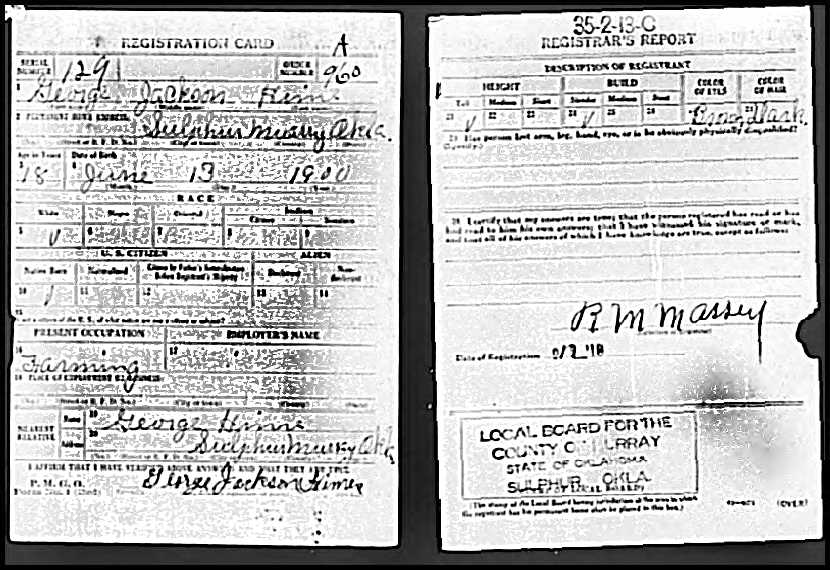 REGISTRATION CARD A
SERIAL NUMBER 129 ORDER NUMBER 960
1 George Jackson Hime
2 PERMANENT HOME ADDRESS Sulphur Murray Okla.
Age in Years Date of Birth
3 18 4 June 13 1900
(Month) (Day) (Year)
RACE
White Negro Oriental Indian
Citizen
5 ✓ 6 7 8 9
U. S. CITIZEN ALIEN
Native Born Naturalized Citizen by Father's Naturalization Before Registrant's Majority Declarant Non-declarant
10 ✓ 11 12 13 14
15
PRESENT OCCUPATION EMPLOYER'S NAME
16 Farming 17
18
NEAREST RELATIVE Name 19 George Hime
Address 20 Sulphur Murray Okla
I AFFIRM THAT I HAVE VERIFIED ABOVE ANSWERS AND THAT THEY ARE TRUE
P. M. G. O.
George Jackson Himes
35-2-13-C
REGISTRAR'S REPORT
DESCRIPTION OF REGISTRANT
HEIGHT BUILD COLOR OF EYES COLOR OF HAIR
Tall Medium Short Slender Medium Stout
21 ✓ 22 23 24 ✓ 25 26 Brown Dark
29 Has person lost arm, leg, hand, eye, or is he obviously physically disqualified?
(Specify.)
30 I certify that my answers are true; that the person registered has read or has
had read to him his own answers; that I have witnessed his signature or mark,
and that all of his answers of which I have knowledge are true, except as follows:
R M Massey
Date of Registration
LOCAL BOARD FOR THE
COUNTY OF MURRAY
STATE OF OKLAHOMA
SULPHUR, OKLA.
(The stamp of the Local Board having jurisdiction of the area in which
the registrant has his permanent home shall be placed in this box.)
(OVER)